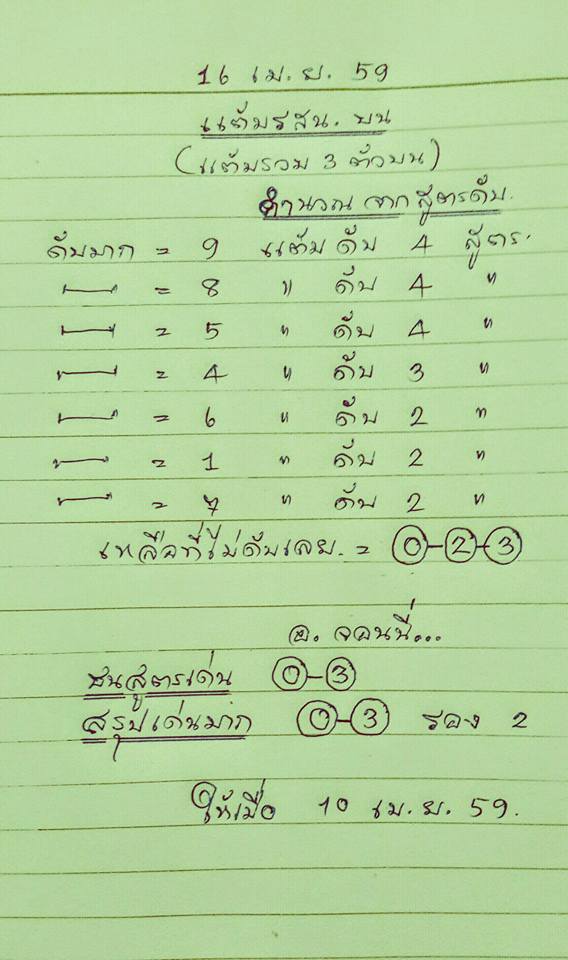 16 เม.ย. 59
แต้มรสน. บน
(แต้มรวม 3 ตัวบน)
คำนวณ จาก สูตรดับ.
ดับมาก = 9 แต้ม ดับ 4 สูตร.
— = 8 " ดับ 4 "
— = 5 " ดับ 4 "
— = 4 " ดับ 3 "
— = 6 " ดับ 2 "
— = 1 " ดับ 2 "
— = 7 " ดับ 2 "
เหลือที่ไม่ดับเลย. = 0-2-3
อ. จอนนี่...
ชนสูตรเด่น 0-3
สรุปเด่นมาก 0-3 รอง 2
ให้เมื่อ 10 เม.ย. 59.